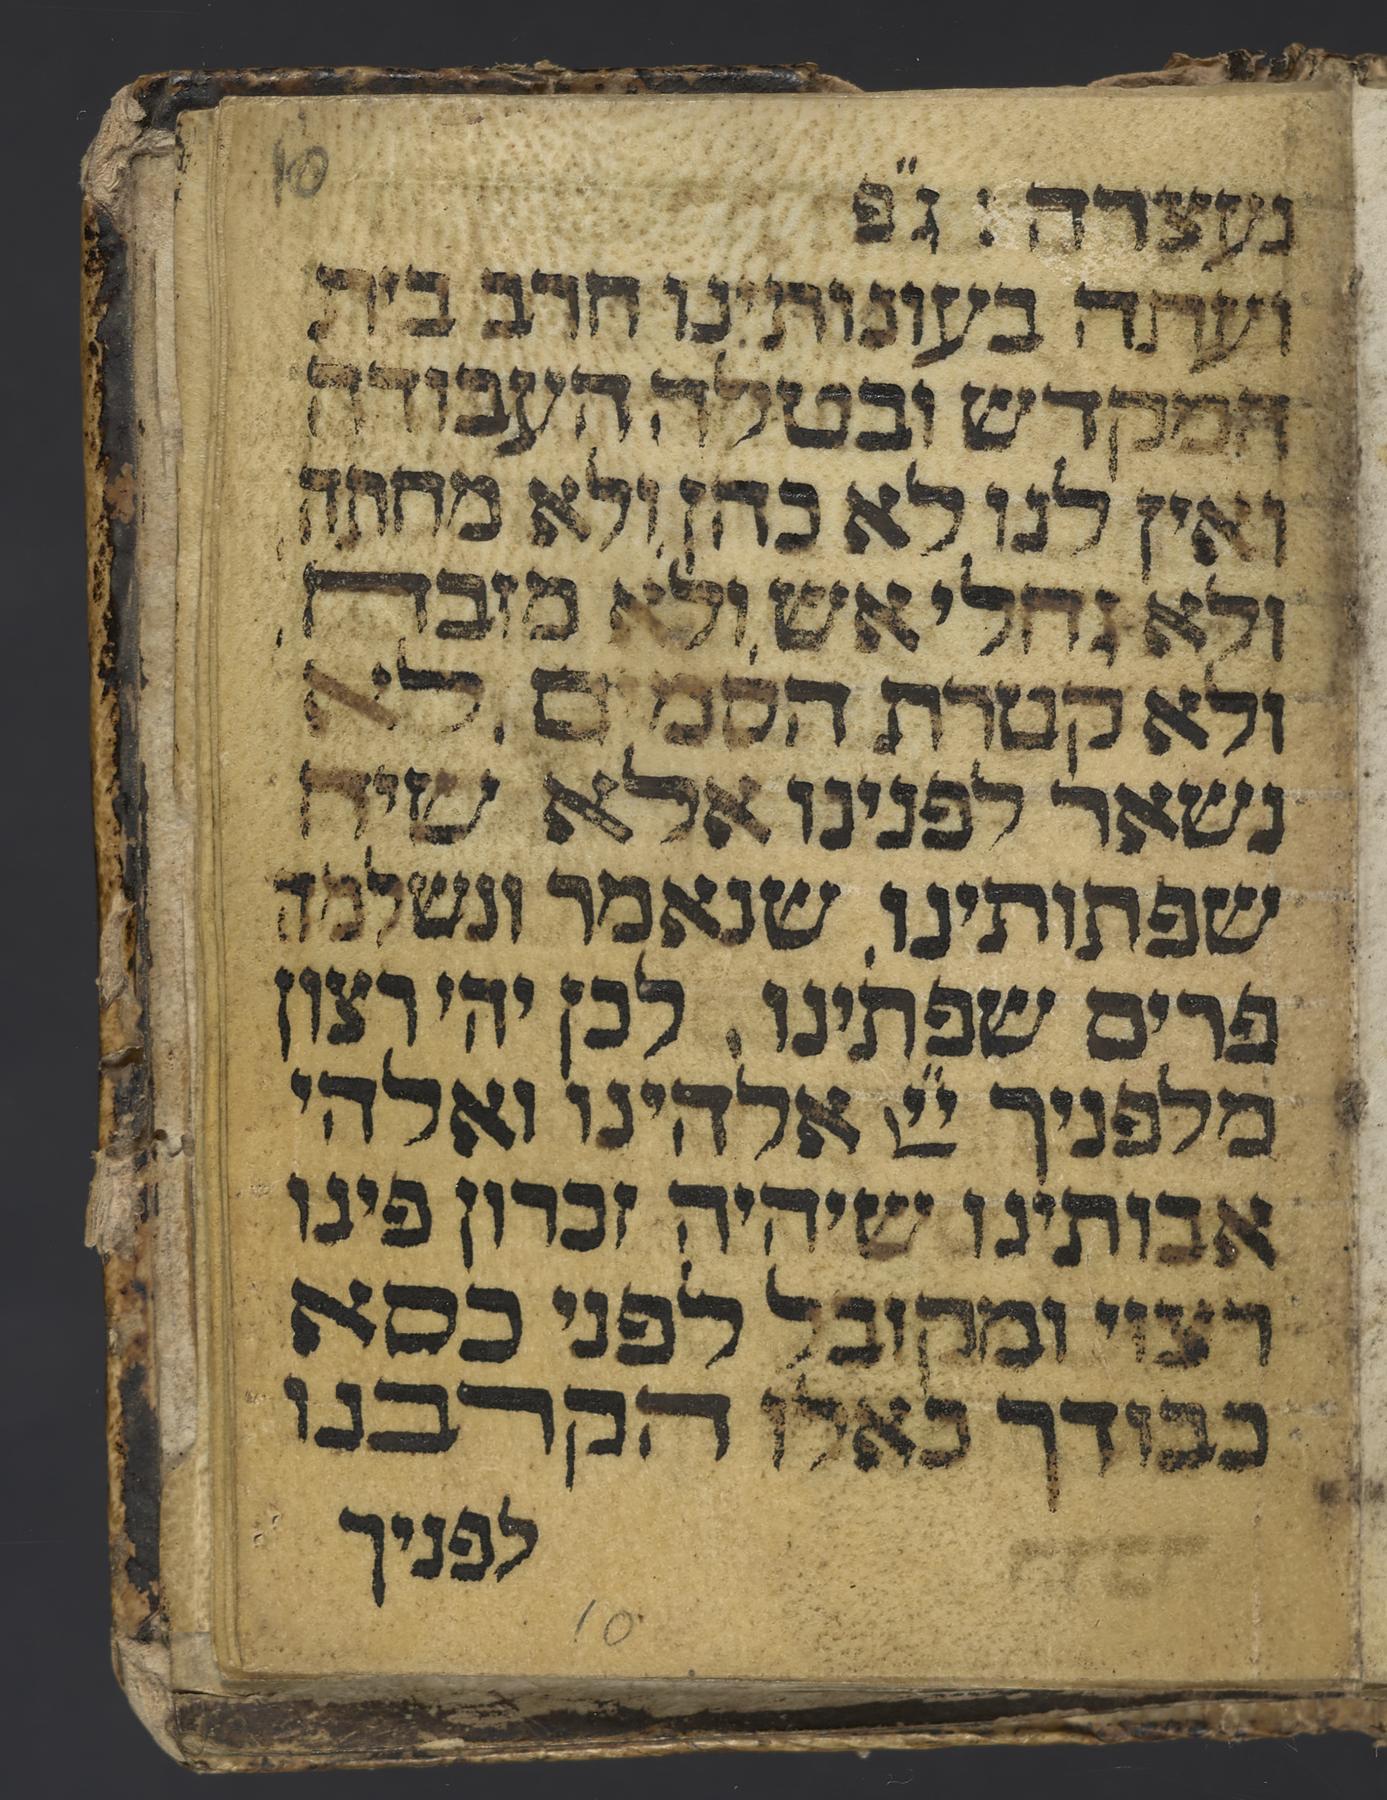 10
נעצרה : ג״פ
ועתה בעונותינו חרב בית
המקדש ובטלה העבודה
ואין לנו לא כהן ולא מחתה
ולא גחלי אש ולא מזבח
ולא קטרת הסמים לא
נשאר לפנינו אלא שיח
שפתותינו שנאמר ונשלמה
פרים שפתינו לכן יהי רצון
מלפניך י״י אלהינו ואלהי
אבותינו שיהיה זכרון פינו
רצוי ומקובל לפני כסא
כבודך כאלו הקרבנו
לפניך
10